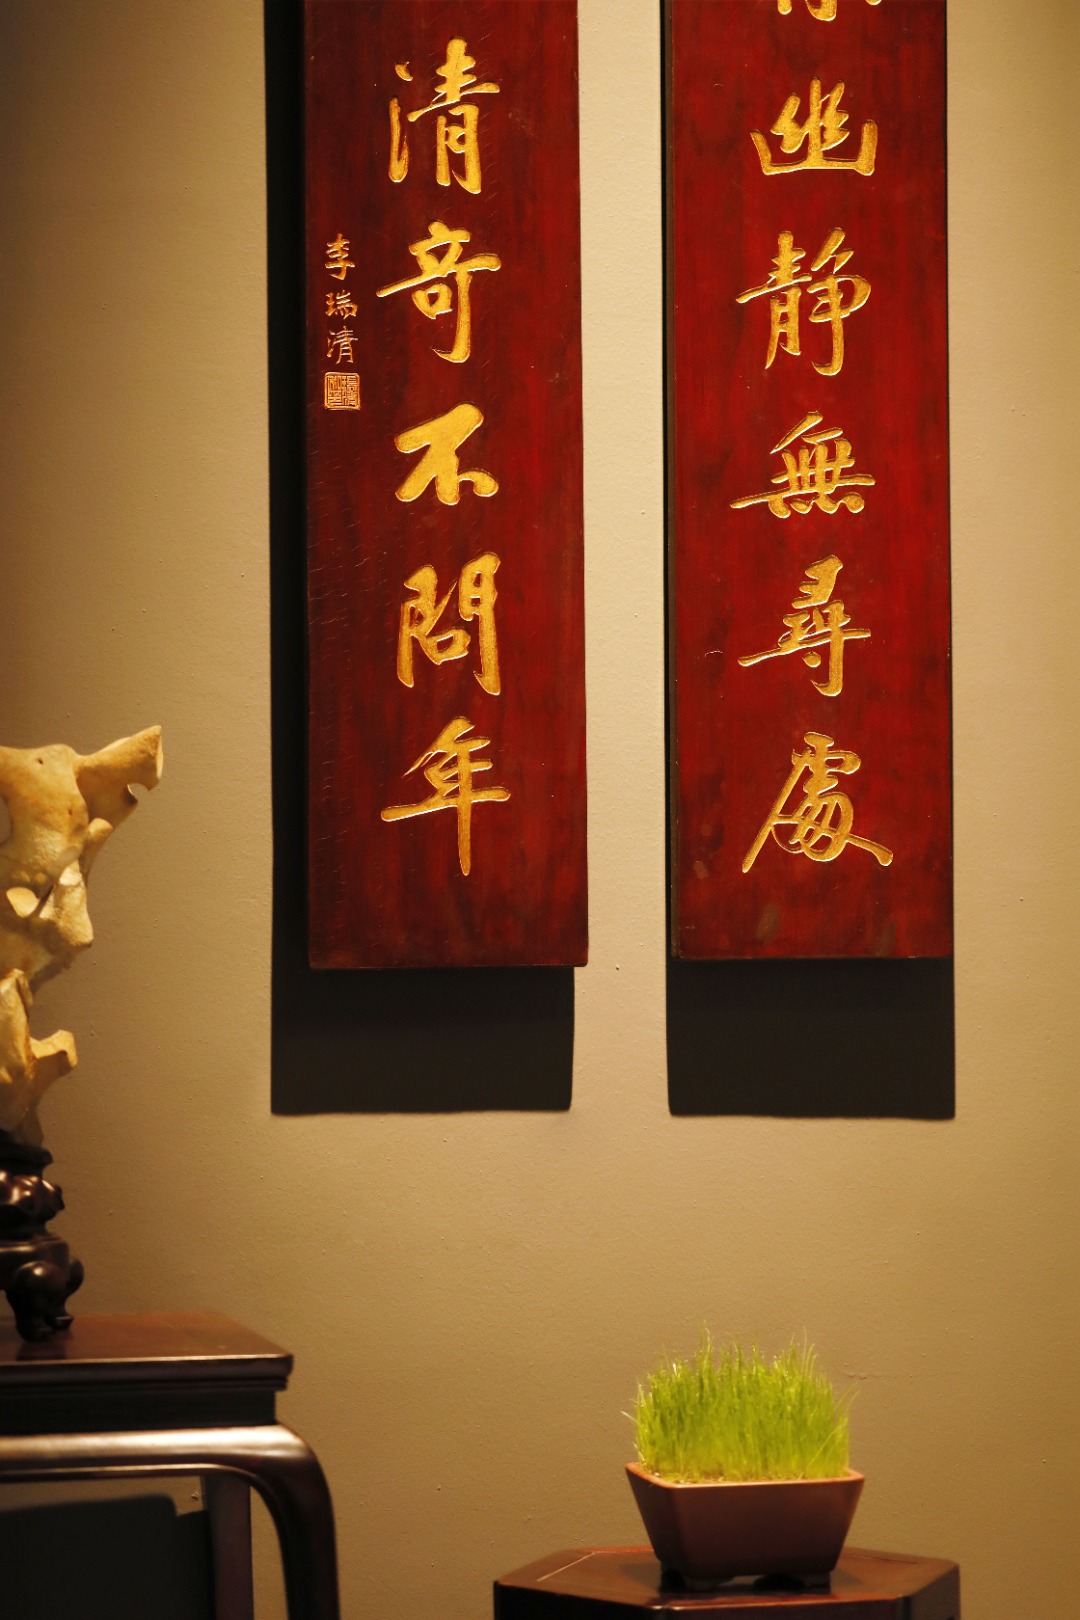 幽靜無尋處
清奇不問年
李瑞清